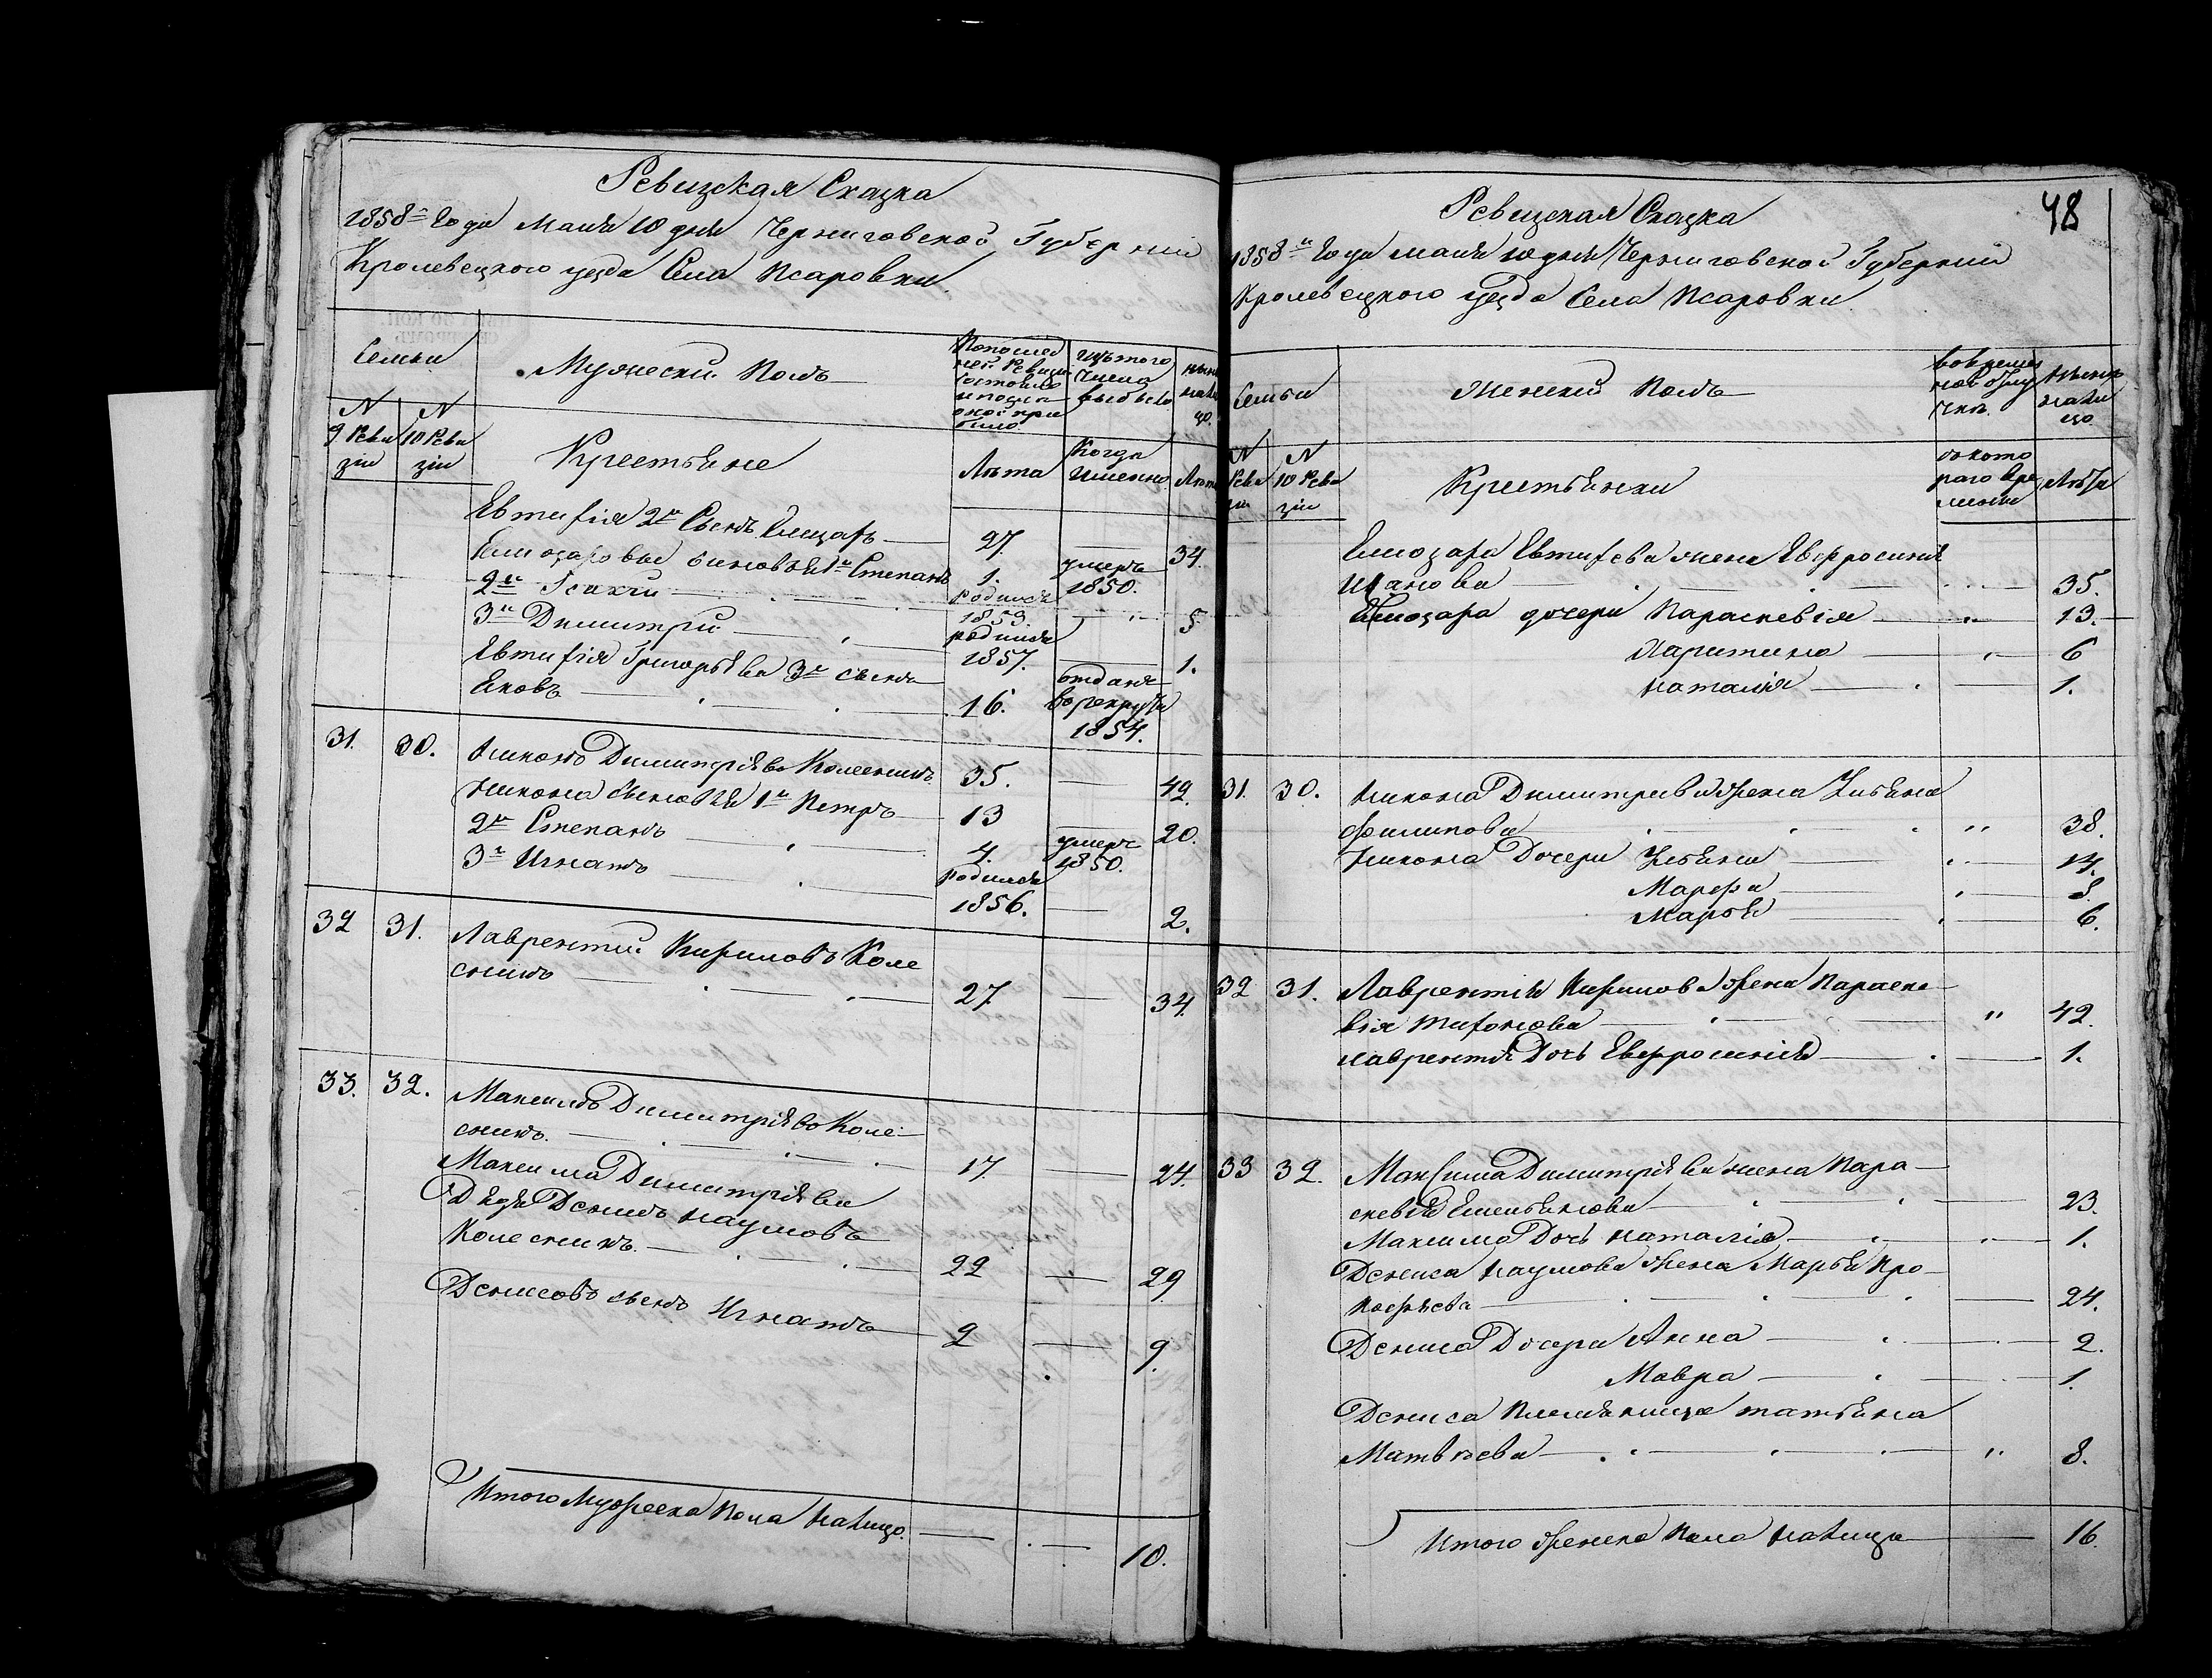 Ревизская Сказка
1858го Года Маия 10 дня Черниговской Губернии
Кролевецкого уезда Села Псаровки
Семьи
Мужеский Полъ
По последней Ревизии состояло и после оной прибыло
Изъ того числа выбыло
ныне налицо
N 9 Ревизіи
N 10 Ревизіи
Крестьяне
Лѣта
Когда именно
Лѣта
Евтифія 2й Сынъ Елиазаръ 27. 34.
Елиазаровы сыновья 1й Степанъ 1. умеръ 1850.
2й Исакий родился 1853. 5
3й Димитрий родился 1857. 1.
Евтифія Григорьева 3й сынъ
Яковъ 16. отданъ в рекруты 1854.
31. 30. Никонъ Димитріевъ Колесникъ 35. 42.
Никона сыновья 1й Петръ 13 20.
2й Степанъ 4. умеръ 1850.
3й Игнатъ родился 1856. 2.
32 31. Лаврентий Кириловъ Коле
сникъ 27 34.
33. 32. Максимъ Димитріевъ Коле
сникъ. 17. 24.
Максима Димитріева
Дядя Денисъ Наумовъ
Колесникъ. 22 29
Денисовъ сынъ Игнатъ 2 9.
Итого Мужеска Пола Налицо. 10.
48
Ревизская Сказка
1858го Года маия 10 дня Черниговской Губернии
Кролевецкого уезда Села Псаровки
Семьи
Женский Полъ
Во временной отлучке
Ныне налицо
N Ревизіи
N 10 Ревизіи
Крестьянки
съ которого времени
Лѣта
Елиозара Евтифева жена Евфросиния
Иванова 35.
Елиозара дочери Параскевія 13.
Харитина 6
Наталія 1.
31. 30. Никона Димитриева Жена Ульяна
Филипова 38.
Никона Дочери Ульяна 14.
Марфа 8.
Марья 6.
32 31. Лаврентія Кирилова Жена Параске
вія Тифонова 42.
Лаврентія Дочь Евфросинія 1.
33 32. Максима Димитріева жена Пара
скевія Емельянова 23.
Максима Дочь Наталія 1.
Дениса Наумова Жена Марья Про
кофьева 24.
Дениса Дочери Анна 2.
Мавра 1.
Дениса Племяница Татьяна
Матвѣева 8.
Итого Женска Пола Налицо 16.